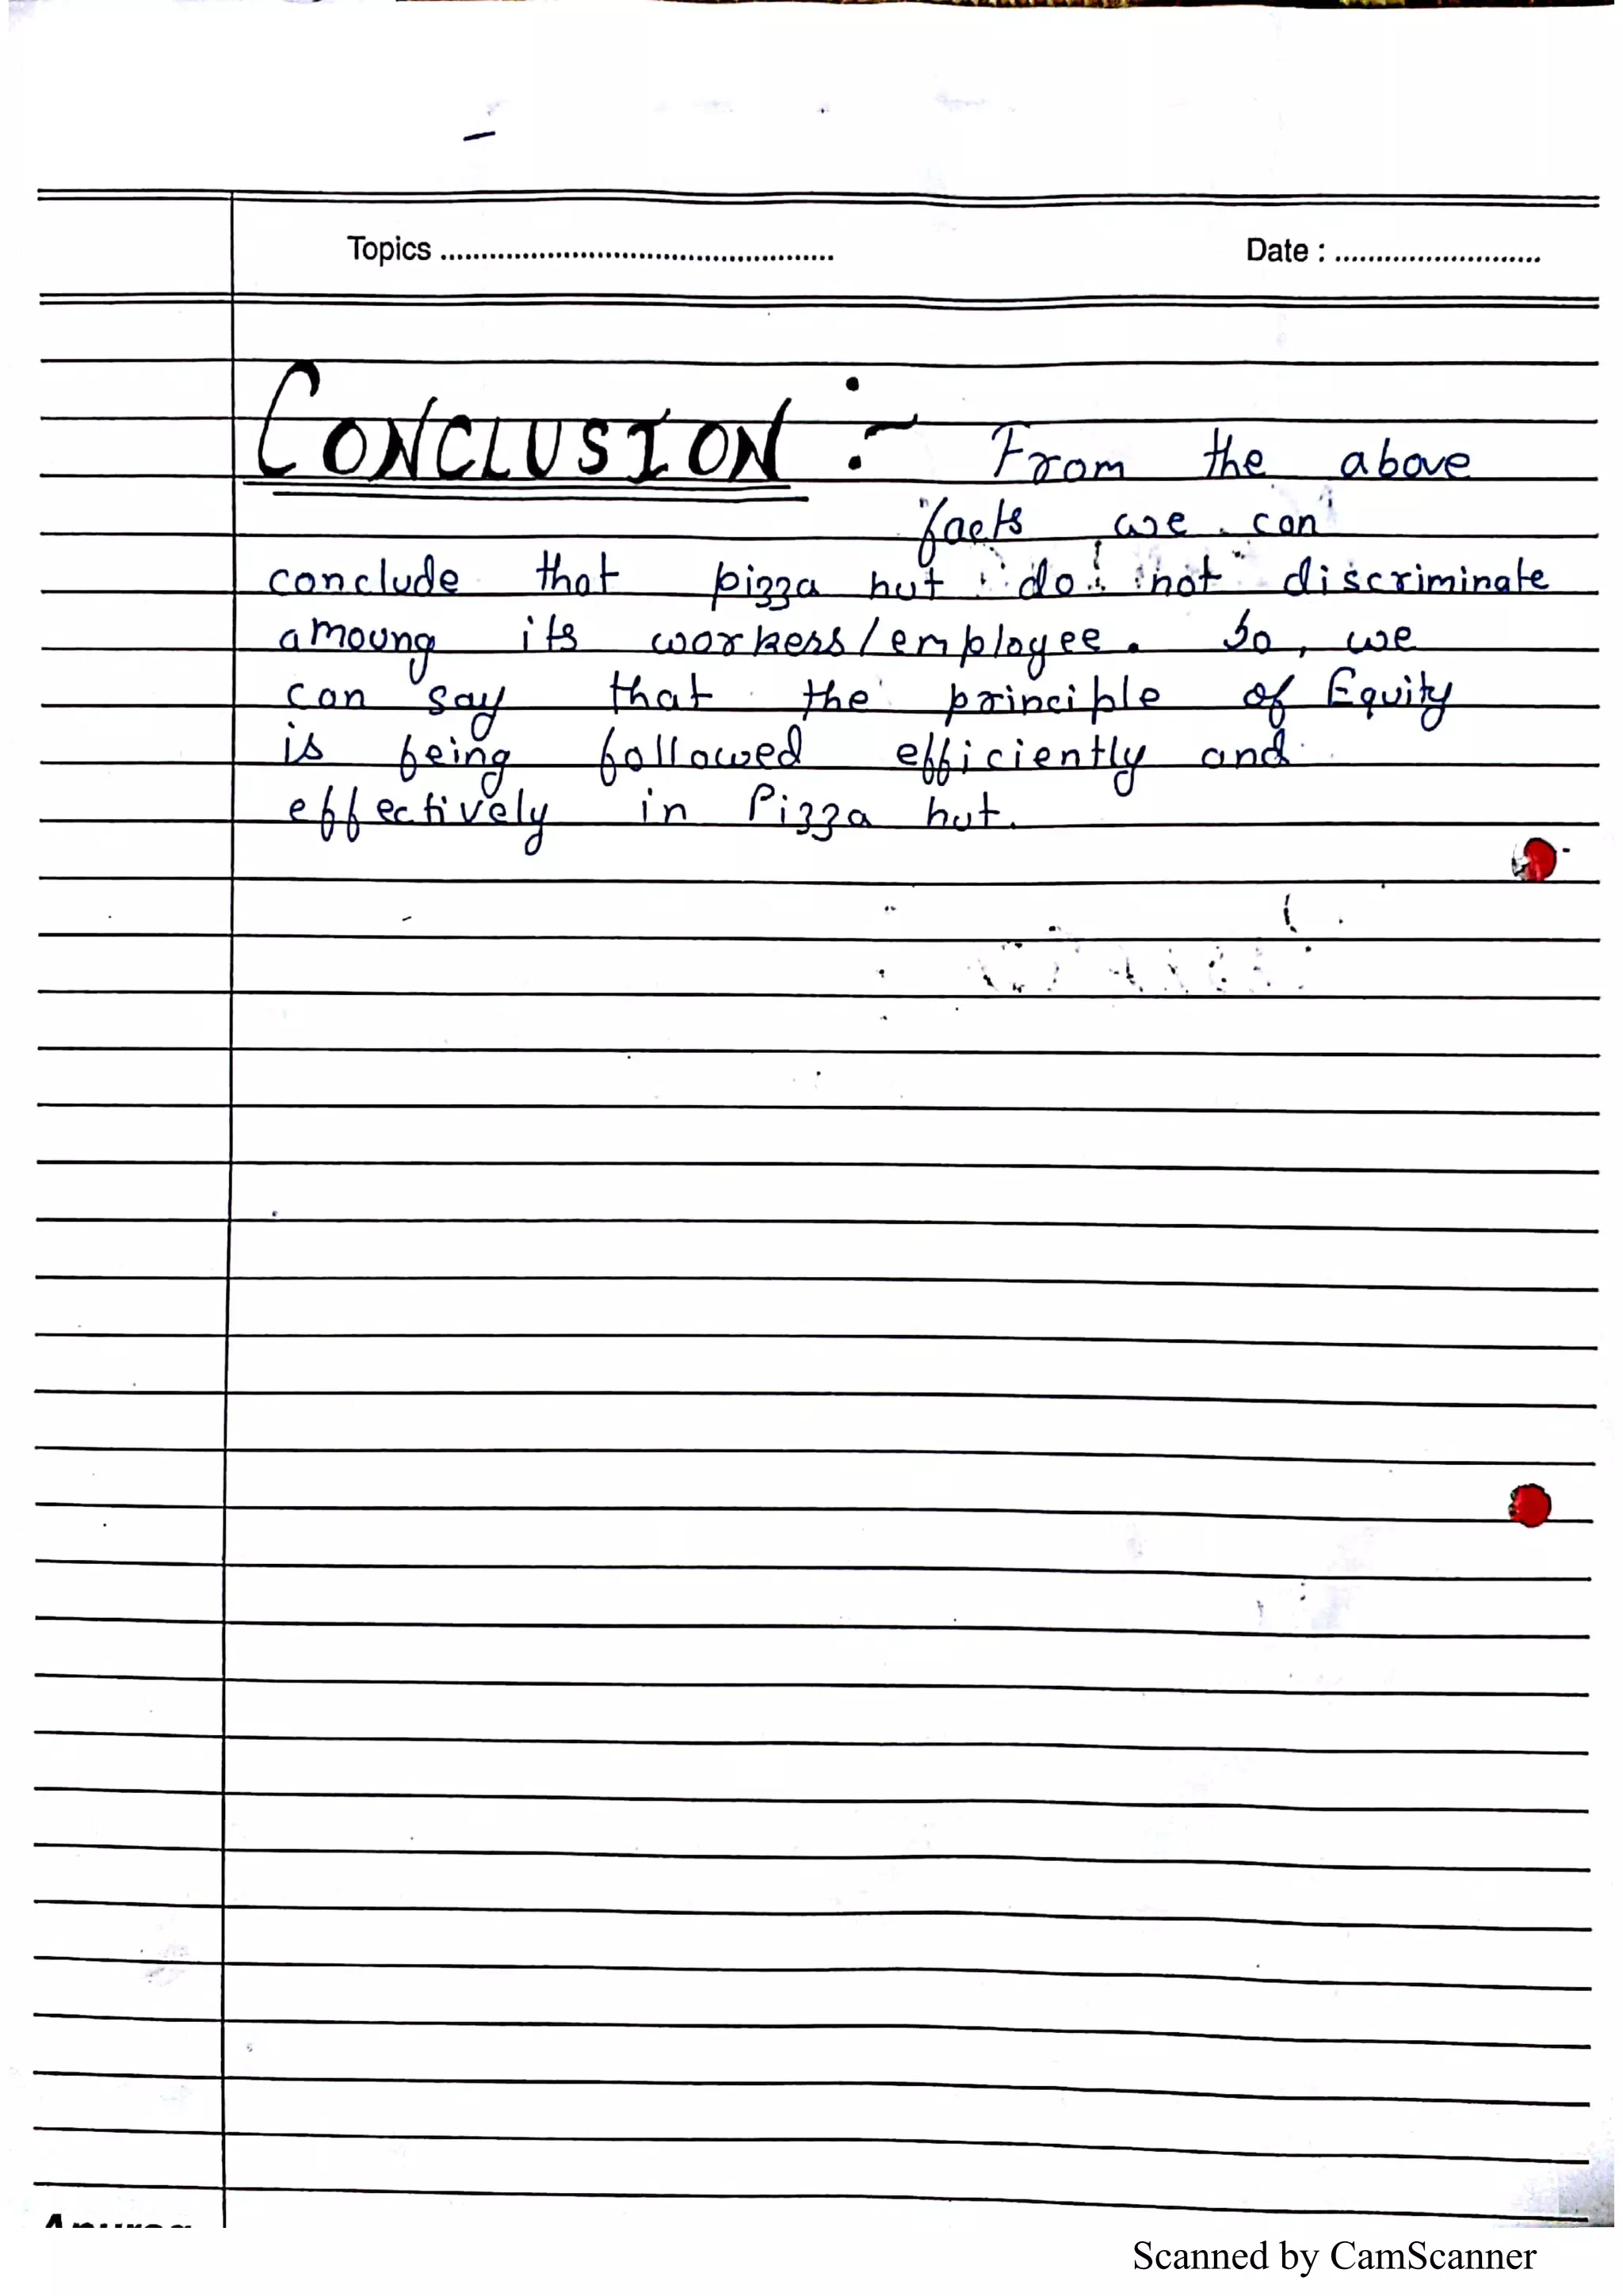 Topics ................................................ Date : .........................
CONCLUSION :- From the above
facts we can
conclude that pizza hut do not discriminate
amoung its workers/employee. So, we
can say that the principle of Equity
is being followed efficiently and
effectively in Pizza hut.
Scanned by CamScanner